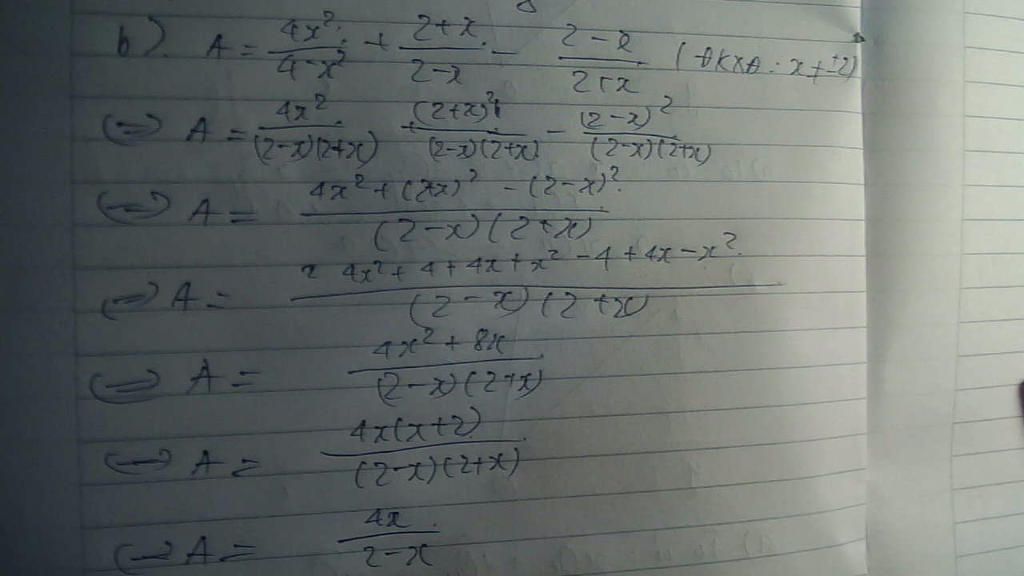 b). A = 4x²/4-x² + 2+x/2-x - 2-x/2+x (ĐKXĐ: x≠±2)
(=) A = 4x²/(2-x)(2+x) + (2+x)²/(2-x)(2+x) - (2-x)²/(2-x)(2+x)
(=) A = 4x²+(2+x)²-(2-x)²/(2-x)(2+x)
(=) A = 4x²+4+4x+x²-4+4x-x²/(2-x)(2+x)
(=) A = 4x²+8x/(2-x)(2+x)
(=) A = 4x(x+2)/(2-x)(2+x)
(=) A = 4x/2-x